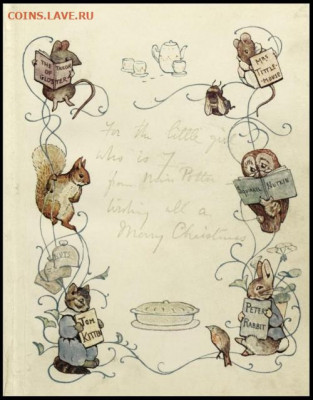 COINS.LAVE.RU
THE TAILOR
OF GLOSTER
MRS
TITTLE-
MOUSE
For the little girl
who is 7
from Miss Potter
wishing all a
Merry Christmas
SQUIRREL NUTKIN
TOM
KITTEN
PETER
RABBIT